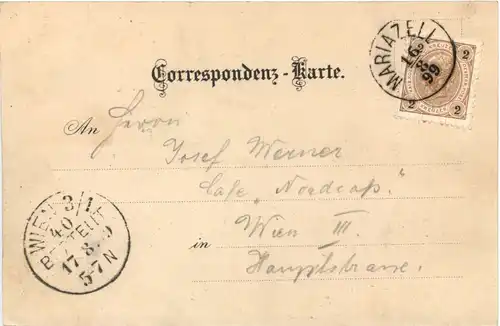 MARIAZELL
16. 8
99
2 2
2
Correspondenz-Karte.
An Herrn
Josef Werner
Cafe „Nordcap."
in Wien III.
Hauptstrasse.
WIEN 3/1
40
BESTELLT
17. 8. 9
5-7 N